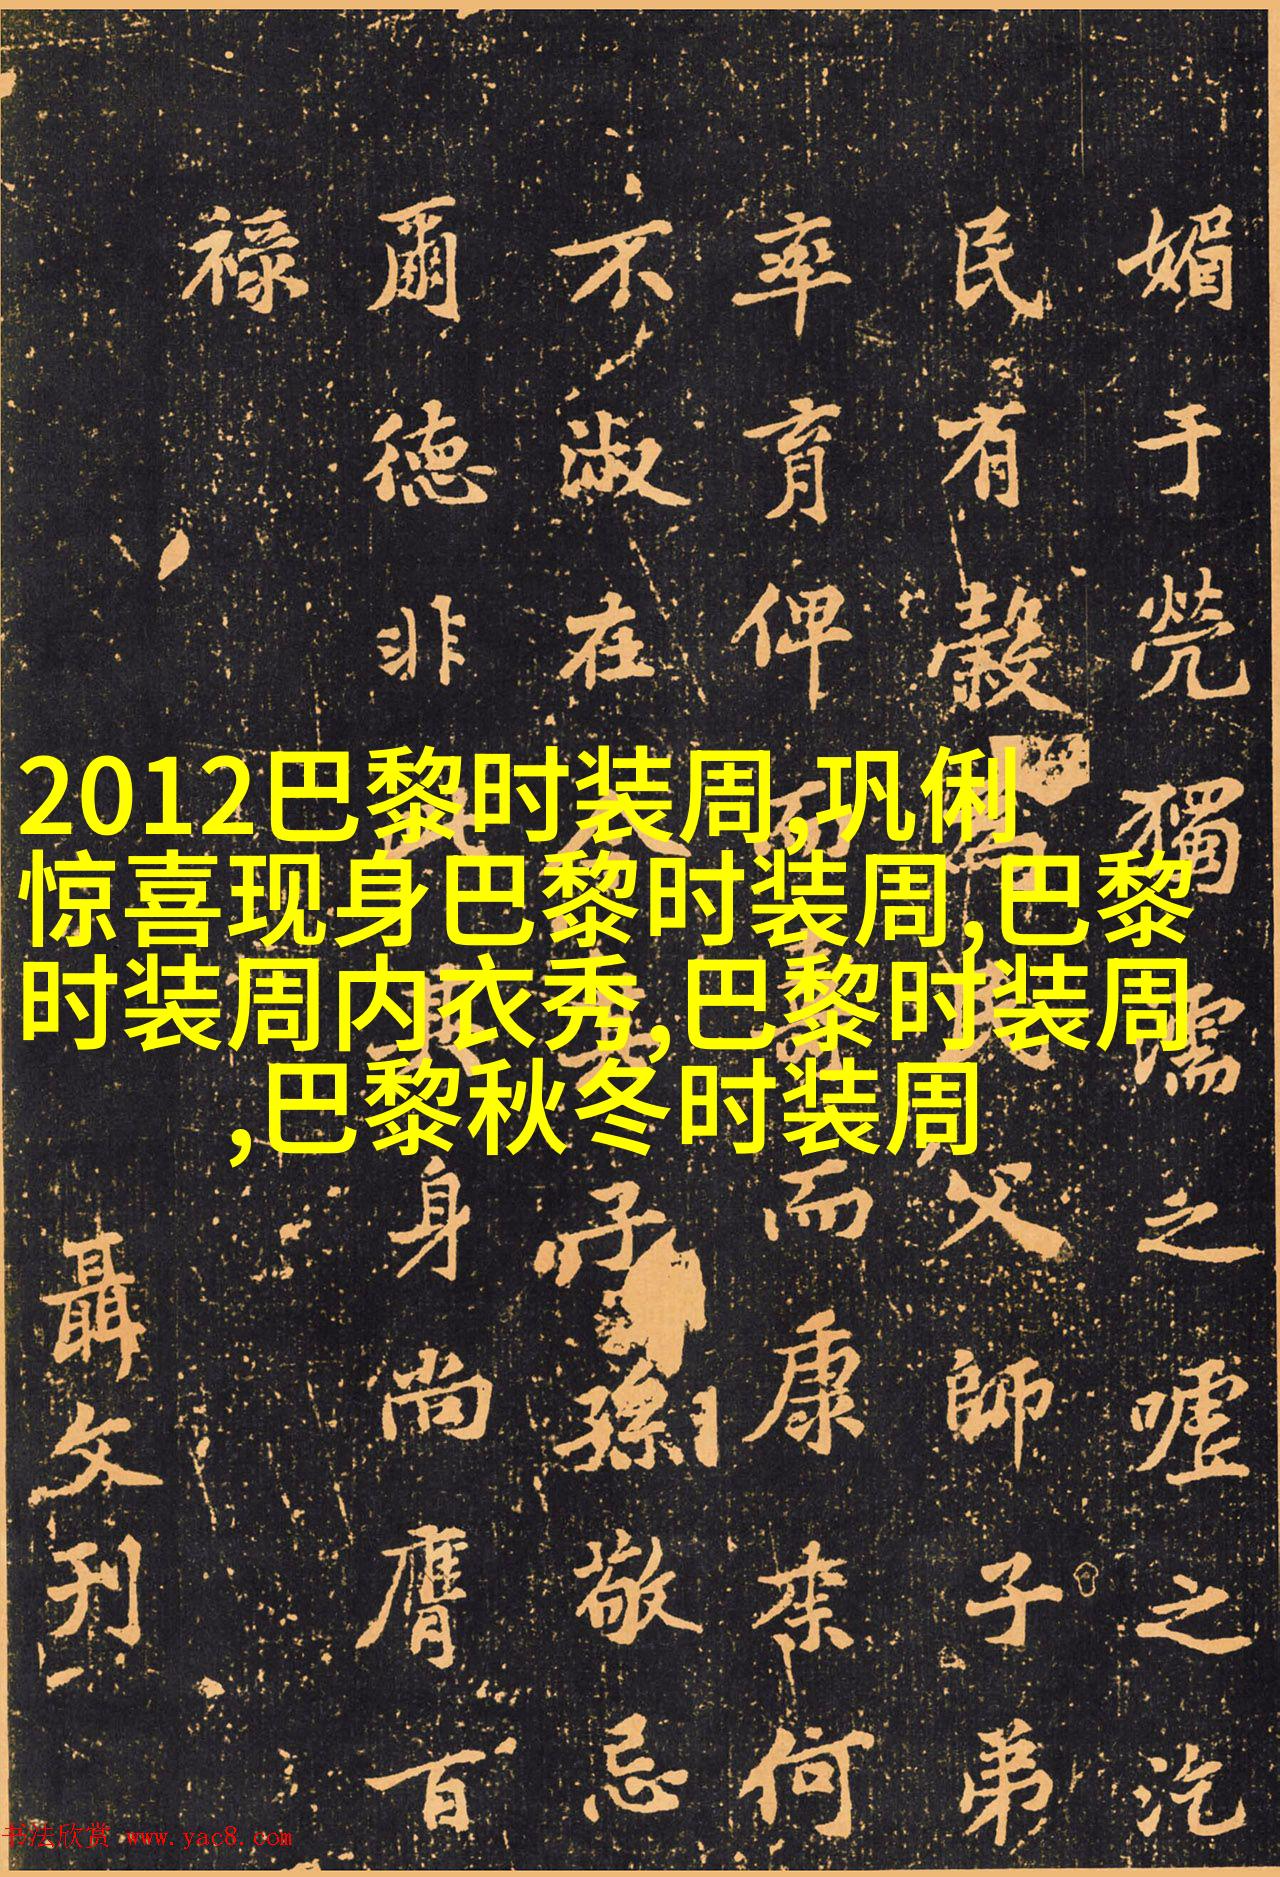 2012巴黎时装周,巩俐
惊喜现身巴黎时装周,巴黎
时装周内衣秀,巴黎时装周
,巴黎秋冬时装周
媚于煢獨濡之嘘之汔
民有穀為民父師子弟
率育俾而壽而康来何
不淑在子孫敬忌
爾德非身尚膺百
禄
聶文刊
书法欣赏 www.yac8.com